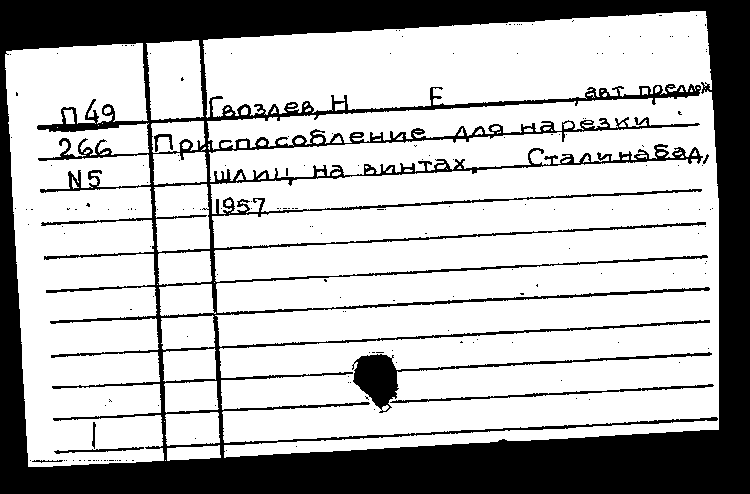 П 49 Гвоздев, Н Е , авт. предлож
266 Приспособление для нарезки
N5 шлиц на винтах. Сталинабад,
1957